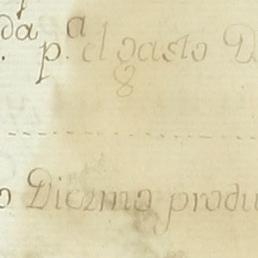 da p.ª el gasto D
o Diezmo produ